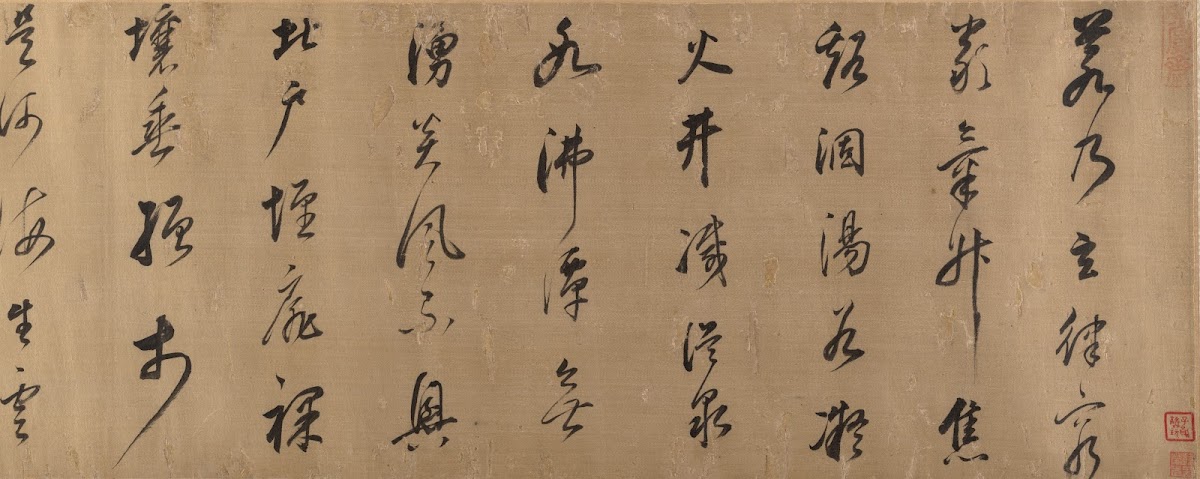 若乃玄律窮
嚴氣升焦
谿涸湯谷凝
火井滅温泉
氷沸潭無
湧炎風不興
北戶墐扉裸
壤垂繒於
是河海生雲